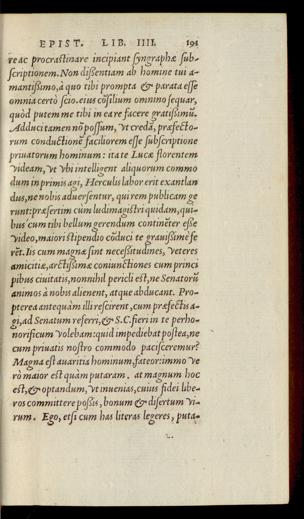 EPIST. LIB. IIII. 191
re ac procrastinare incipiant syngraphæ sub-
scriptionem. Non dißentiam ab homine tui a-
mantißimo, à quo tibi prompta & parata esse
omnia certò scio. eius cõsilium omnino sequar,
quòd putem me tibi in ea re facere gratißimũ.
Adduci tamen nõ possum, vt credã, præfecto-
rum conductionẽ faciliorem esse subscriptione
priuatorum hominum: ita te Lucæ florentem
videam, vt vbi intelligent aliquorum commo
dum in primis agi, Herculis labor erit exantlan
dus, ne nobis aduersentur, qui rem publicam ge
runt: præsertim cum ludimagistri quidam, qui-
bus cum tibi bellum gerendum continẽter esse
video, maiori stipendio cõduci te grauißimè fe
rẽt. Iis cum magnæ sint necessitudines, veteres
amicitiæ, arctißimæ coniunctiones cum princi
pibus ciuitatis, nonnihil pericli est, ne Senatorũ
animos à nobis alienent, atque abducant. Pro-
pterea antequàm illi rescirent, cum præfectis a-
gi, ad Senatum referri, & S.C. fieri in te perho-
norificum volebam: quid impediebat postea, ne
cum priuatis nostro commodo pacisceremur?
Magna est auaritia hominum, fateor: immo ve
rò maior est quàm putaram. at magnum hoc
est, & optandum, vt inuenias, cuius fidei libe-
ros committere poßis, bonum & disertum vi-
rum. Ego, etsi cum has literas legeres, puta-